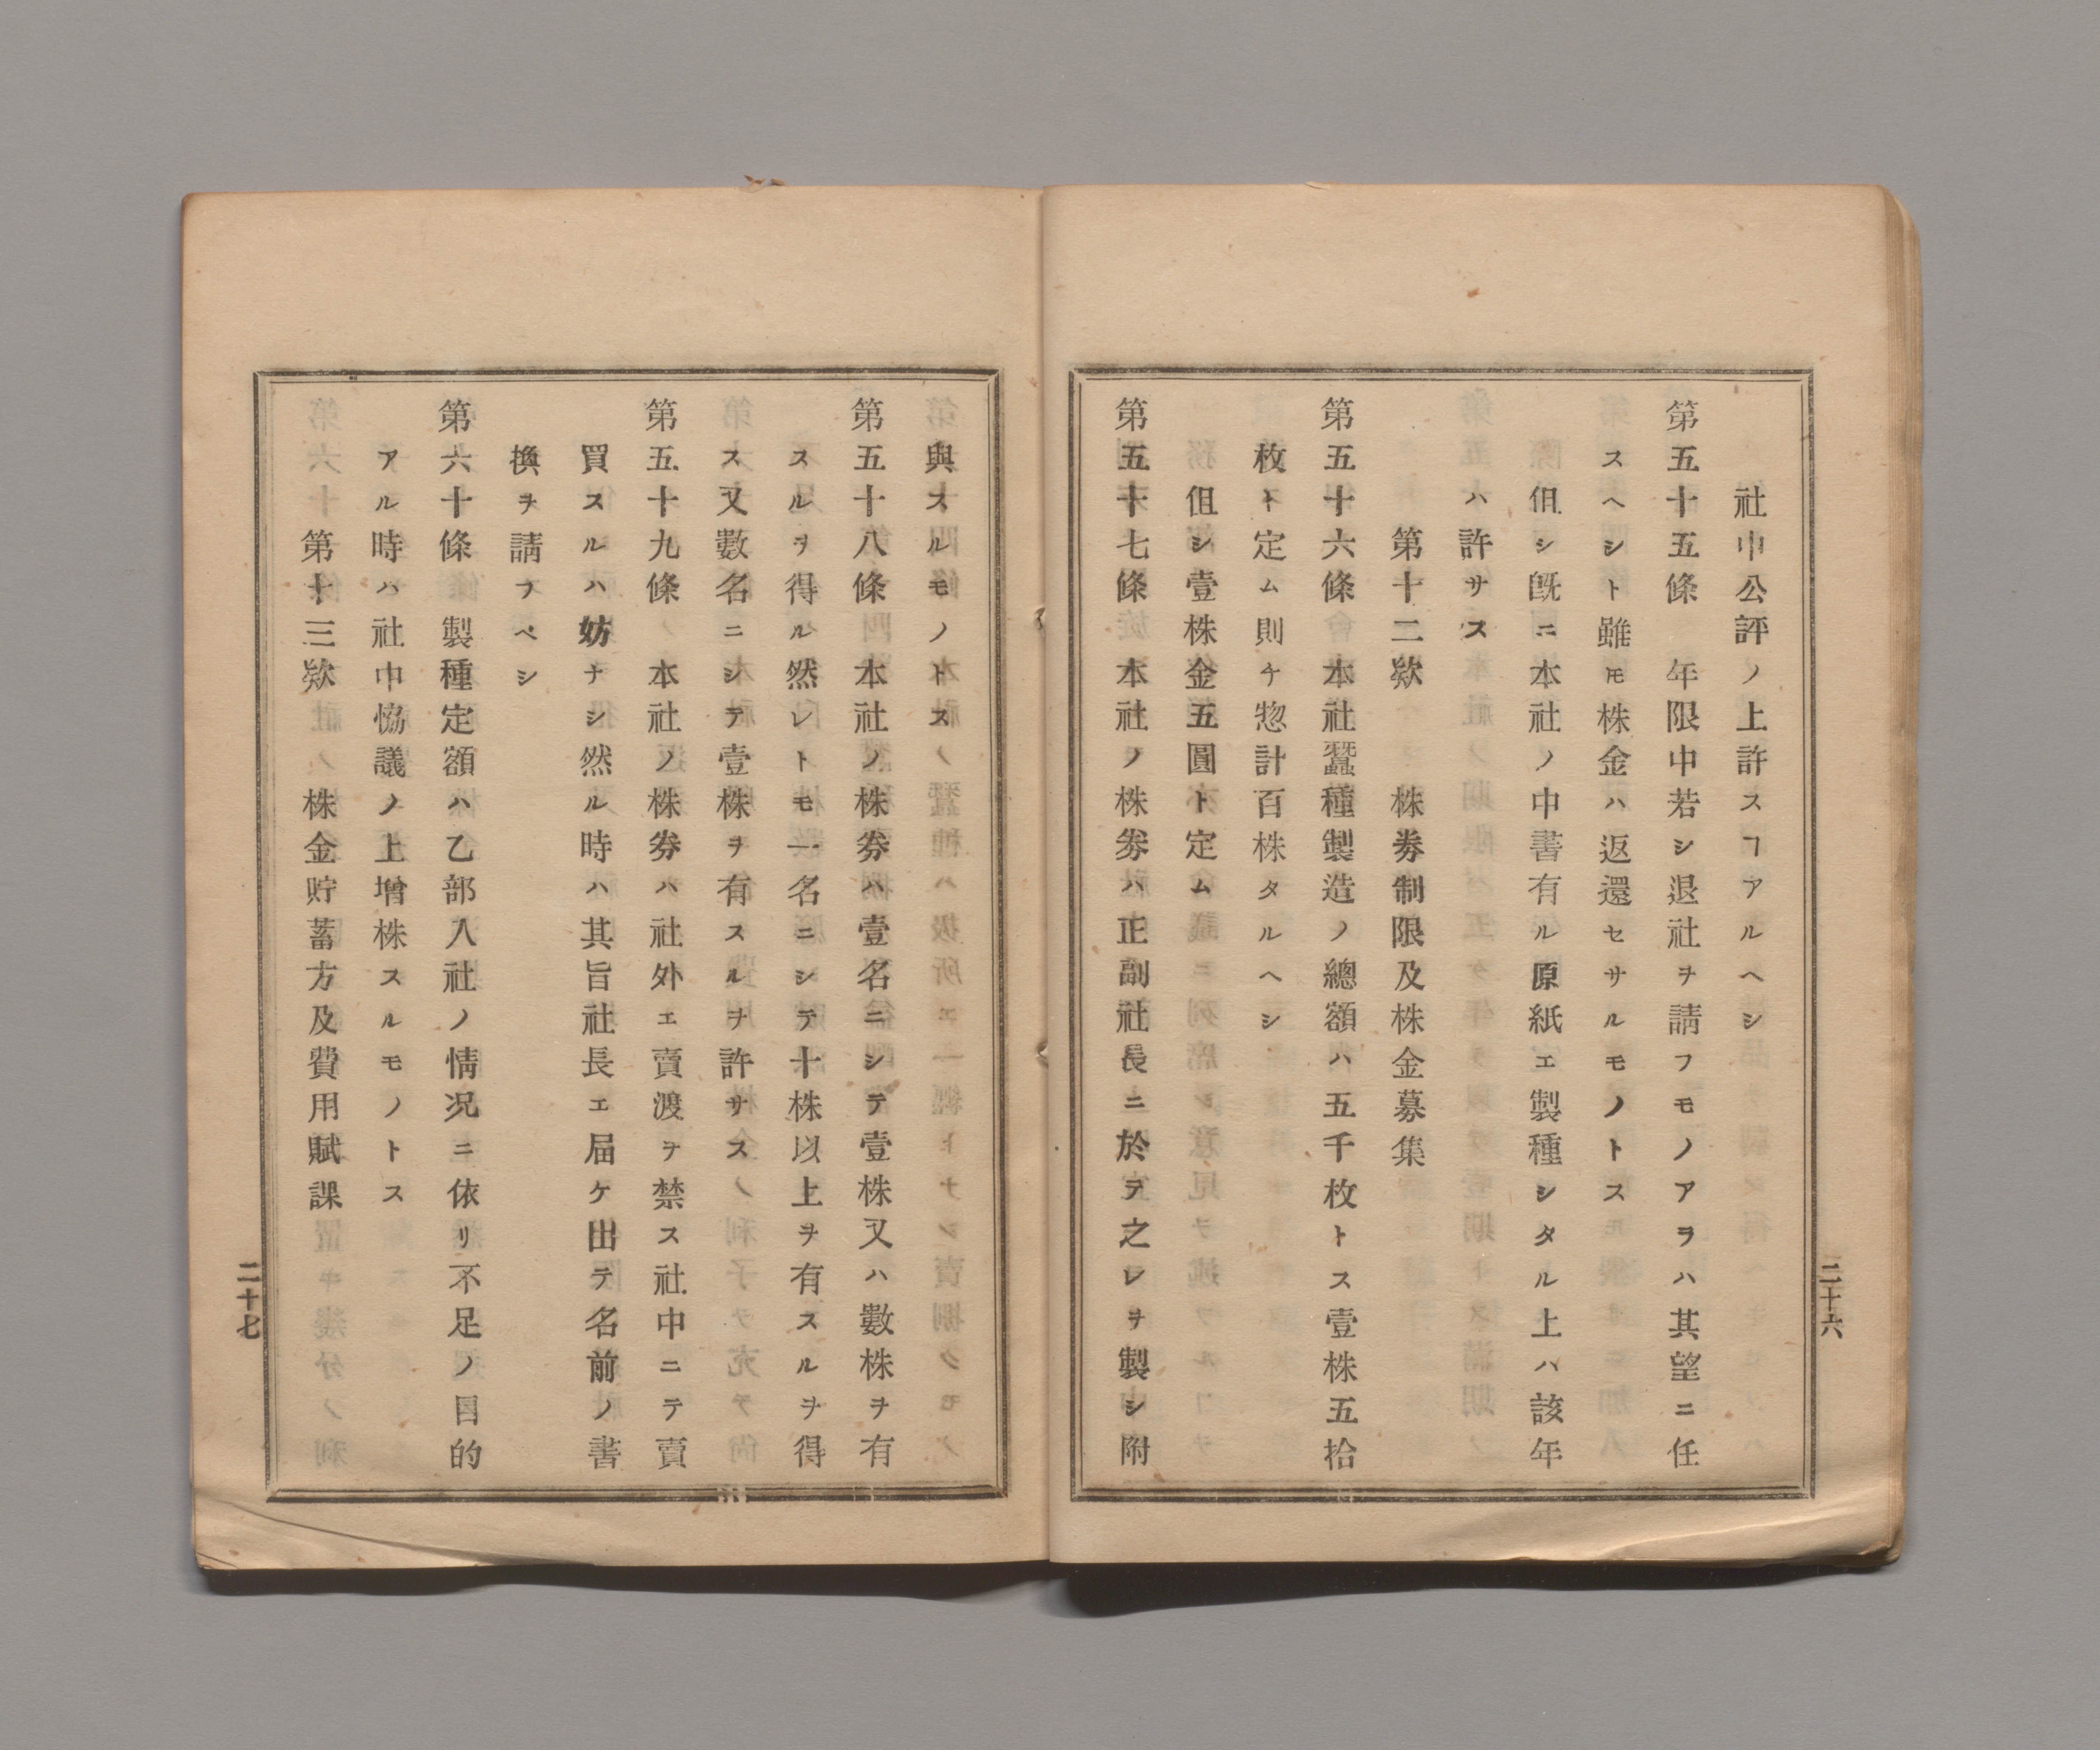 社中公評ノ上許スヿアルヘシ
第五十五條 年限中若シ退社ヲ請フモノアラハ其望ニ任
スヘシト雖𪜈株金ハ返還セサルモノトス
但シ既ニ本社ノ中書有ル原紙エ製種シタル上ハ該年
ハ許サス
第十二欵 株券制限及株金募集
第五十六條 本社蠶種製造ノ總額ハ五千枚トス壹株五拾
枚ト定ム則チ惣計百株タルヘシ
但シ壹株金五圓ト定ム
第五十七條 本社ノ株券ハ正副社長ニ於テ之レヲ製シ附
二十六
與スルモノトス
第五十八條 本社ノ株券ハ壹名ニシテ壹株又ハ數株ヲ有
スルヲ得ル然レトモ一名ニシテ十株以上ヲ有スルヲ得
ス又數名ニシテ壹株ヲ有スルヲ許サス
第五十九條 本社ノ株券ハ社外エ賣渡ヲ禁ス社中ニテ賣
買スルハ妨ナシ然ル時ハ其旨社長エ届ケ出テ名前ノ書
換ヲ請フベシ
第六十條 製種定額ハ乙部入社ノ情况ニ依リ不足ノ目的
アル時ハ社中恊議ノ上增株スルモノトス
第十三欵 株金貯蓄方及費用賦課
二十七